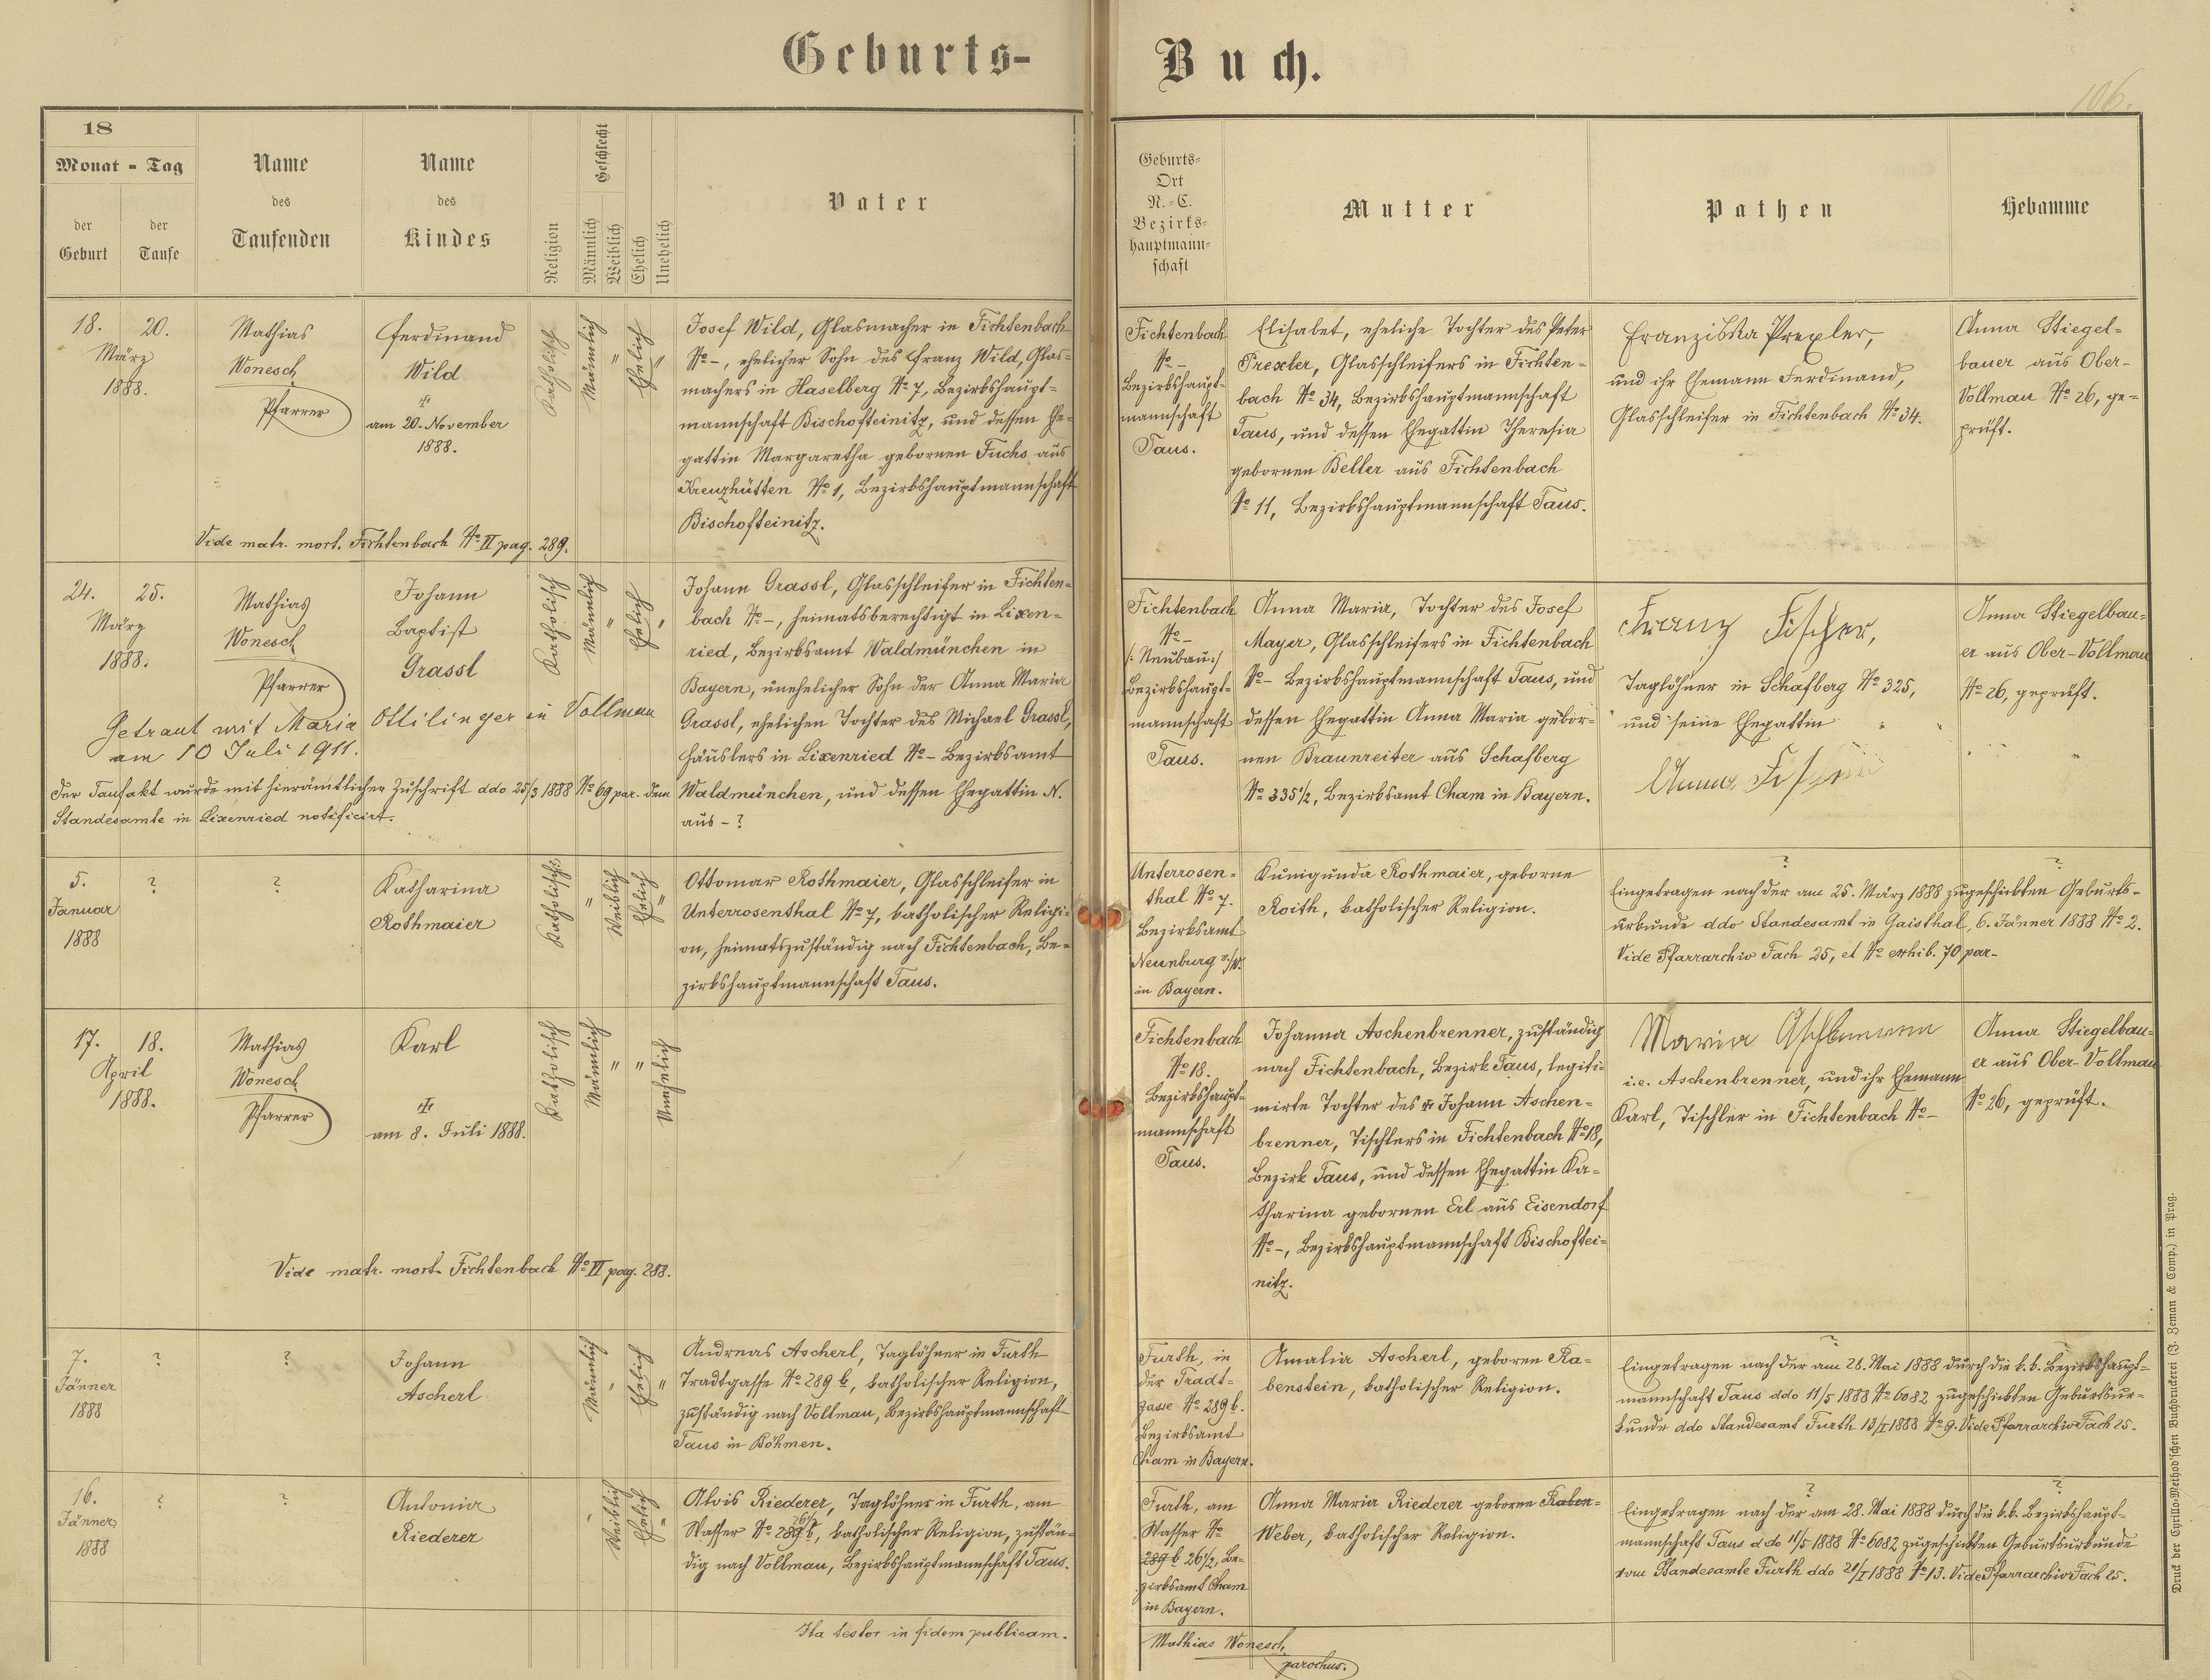 Geburts-
Buch.
106.
18
Monat - Tag
der
Geburt
der
Taufe
Name
des
Taufenden
Name
des
Kindes
Religion
Geschlecht
Männlich
Weiblich
Ehelich
Unehelich
Vater
Geburts-
Ort
N.-C.
Bezirks-
hauptmann-
schaft
Mutter
Pathen
Hebamme
18. 20.
März
1888.
Mathias
Wonesch
Pfarrer
Ferdinand
Wild
am 20. November
1888.
Katholisch
Männlich
"
Ehelich
"
Josef Wild, Glasmacher in Fichtenbach
No -, ehelicher Sohn des Franz Wild, Glas=
machers in Haselberg No 7, Bezirkshaupt=
mannschaft Bischofteinitz, und dessen Ehe=
gattin Margaretha gebornen Fuchs aus
Kreuzhütten No 1, Bezirkshauptmannschaft
Bischofteinitz.
Vide matr. mort. Fichtenbach No II pag. 289.
Fichtenbach
No -
Bezirkshaupt-
mannschaft
Taus.
Elisabet, eheliche Tochter des Peter
Prexler, Glasschleifers in Fichten=
bach No 34, Bezirkshauptmannschaft
Taus, und dessen Ehegattin Theresia
gebornen Beller aus Fichtenbach
No 11, Bezirkshauptmannschaft Taus.
Franziska Prexler,
und ihr Ehemann Ferdinand,
Glasschleifer in Fichtenbach No 34.
Anna Stiegel=
bauer aus Ober-
Vollmau No 26, ge=
prüft.
24. 25.
März
1888.
Mathias
Wonesch
Pfarrer
Johann
Baptist
Grassl
Katholisch
Männlich
"
Ehelich
"
Johann Grassl, Glasschleifer in Fichten=
bach No -, heimatsberechtigt in Lixen=
ried, Bezirksamt Waldmünchen in
Bayern, unehelicher Sohn der Anna Maria
Grassl, ehelichen Tochter des Michael Grassl,
Häuslers in Lixenried No - Bezirksamt
Waldmünchen, und dessen Ehegattin N.
aus - ?
Getraut mit Maria Ottilinger in Vollmau
am 10 Juli 1911.
Der Taufakt wurde mit hierämtlicher Zuschrift ddo 25/3 1888 No 69 par. dem
Standesamte in Lixenried notificirt.
Fichtenbach
No -
/: Neubau:/
Bezirkshaupt=
mannschaft
Taus.
Anna Maria, Tochter des Josef
Mayer, Glasschleifers in Fichtenbach
No - Bezirkshauptmannschaft Taus, und
dessen Ehegattin Anna Maria gebor=
nen Braunreiter aus Schafberg
No 335 1/2, Bezirksamt Cham in Bayern.
Franz Fischer,
Taglöhner in Schafberg No 325,
und seine Ehegattin
Anna Fischer
Anna Stiegelbau=
er aus Ober-Vollmau
No 26, geprüft.
5.
Januar
1888
?
?
Katharina
Rothmaier
Katholisch
"
Weiblich
Ehelich
"
Ottomar Rothmaier, Glasschleifer in
Unterrosenthal No 7, katholischer Religi=
on, heimatszuständig nach Fichtenbach, Be=
zirkshauptmannschaft Taus.
Unterrosen=
thal No 7.
Bezirksamt
Neunburg v/W.
in Bayern.
Kunigunda Rothmaier, geborne
Roith, katholischer Religion.
? ?
Eingetragen nach der am 25. März 1888 zugeschickten Geburts-
urkunde ddo Standesamt in Gaisthal, 6. Jänner 1888 No 2.
Vide Pfarrarchiv Fach 25, et No exhib. 70 par-
17. 18.
April
1888.
Mathias
Wonesch
Pfarrer
Karl
am 8. Juli 1888.
Katholisch
Männlich
"
"
Unehelich
Vide matr. mort. Fichtenbach No II pag. 288.
Fichtenbach
No 18.
Bezirkshaupt-
mannschaft
Taus.
Johanna Aschenbrenner, zuständig
nach Fichtenbach, Bezirk Taus, legiti=
mirte Tochter des Johann Aschen=
brenner, Tischlers in Fichtenbach No 18,
Bezirk Taus, und dessen Ehegattin Ka=
tharina gebornen Erl aus Eisendorf
No -, Bezirkshauptmannschaft Bischoftei=
nitz.
Maria
i.e. Aschenbrenner, und ihr Ehemann
Karl, Tischler in Fichtenbach No -
Anna Stiegelbau=
er aus Ober-Vollmau
No 26, geprüft.
7.
Jänner
1888
?
?
Johann
Ascherl
Männlich
"
Ehelich
"
Andreas Ascherl, Taglöhner in Furth
Tradtgasse No 289 b, katholischer Religion,
zuständig nach Vollmau, Bezirkshauptmannschaft
Taus in Böhmen.
Furth, in
der Tradt=
gasse No 289 b.
Bezirksamt
Cham in Bayern.
Amalia Ascherl, geboren Ra=
benstein, katholischer Religion.
?
Eingetragen nach der am 26. Mai 1888 durch die k.k. Bezirkshaupt=
mannschaft Taus ddo 11/5 1888 No 6082 zugeschickten Geburtsur=
kunde ddo Standesamt Furth 13/I 1888 No 9. Vide Pfarrarchiv Fach 25.
16.
Jänner
1888
?
?
Antonia
Riederer
"
Weiblich
Ehelich
"
Alois Riederer, Taglöhner in Furth, am
Wasser No 289 b, katholischer Religion, zustän=
dig nach Vollmau, Bezirkshauptmannschaft Taus.
Furth, am
Wasser No
289 b 26 1/2, Be=
zirksamt Cham
in Bayern.
Anna Maria Riederer geboren Raben=
Weber, katholischer Religion.
? ?
Eingetragen nach der am 28. Mai 1888 durch die k.k. Bezirkshaupt-
mannschaft Taus ddo 11/5 1888 No 6082 zugeschickten Geburtsurkunde
vom Standesamte Furth ddo 21/I 1888 No 13. Vide Pfarrarchiv Fach 25.
Ita testor in fidem publicam.
Mathias Wonesch,
parochus.
Druck der Cyrillo-Method'schen Buchdruckerei (J. Zeman & Comp.) in Prag.